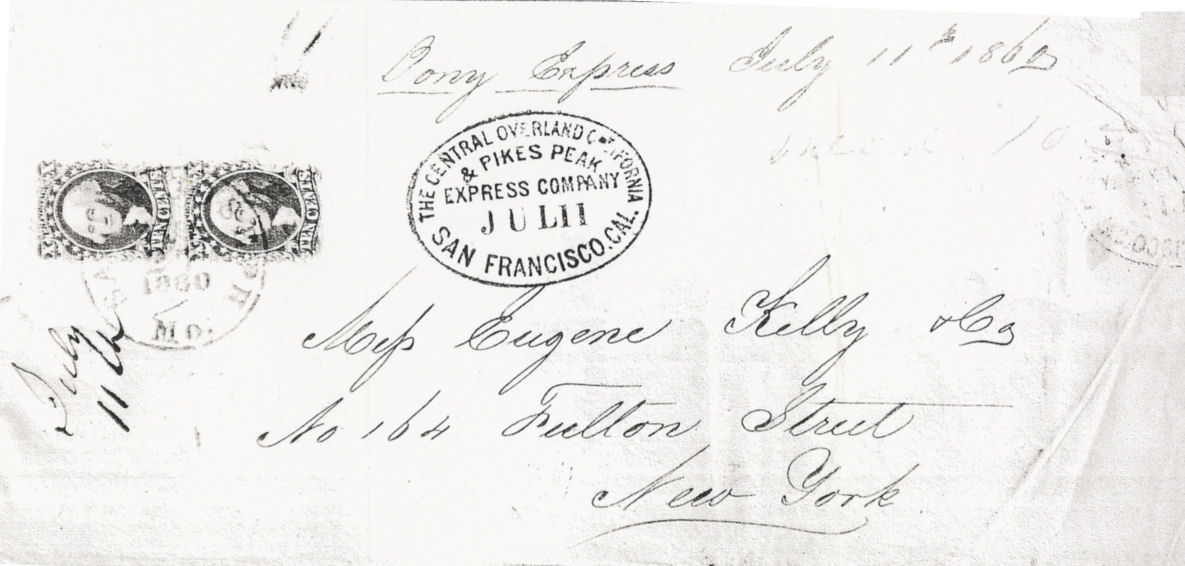 Pony Express July 11th 1860
THE CENTRAL OVERLAND CALIFORNIA
& PIKES PEAK
EXPRESS COMPANY
JUL 11
SAN FRANCISCO. CAL.
1860
Mo.
July
11th
Mess Eugene Kelly & Co
No 164 Fulton Street
New York